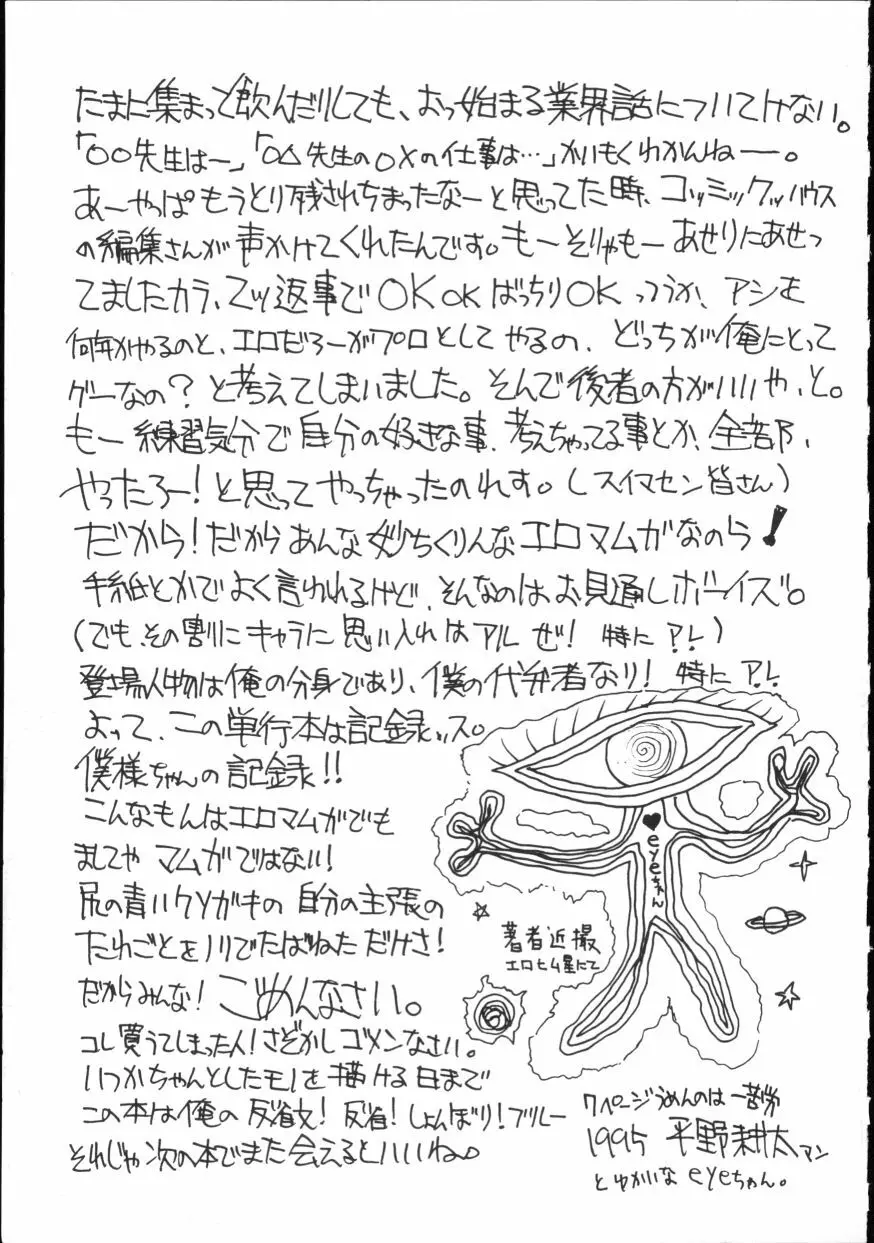 たまに集まって飲んだりしても、おっ始まる業界話についてけない。
「○○先生はー」「○△先生の○×の仕事は…」かいもくわかんねーー。
あーやっぱもうとり残されちまったなーと思ってた時、コッミックッハウス
の編集さんが声かけてくれたんです。もーそりゃもーあせりにあせっ
てましたカラ、二ツ返事でOKOKばっちりOKっつうか、アシを
何年かやるのと、エロだろーがプロとしてやるの、どっちが俺にとって
ゲーなの？と考えてしまいました。そんで後者の方がいいや、と。
もー練習気分で自分の好きな事、考えちゃってる事とか、全部、
やったろー！と思ってやっちゃったのれす。(スイマセン皆さん)
だから！だからあんな妙ちくりんなエロマムガなのら！
手紙とかでよく言われるけど、そんなのはお見通しボーイズ。
(でも、その割にキャラに思い入れはアルぜ！特にアレ)
登場人物は俺の分身であり、僕の代弁者なり！特にアレ
よって、この単行本は記録ッス。
僕様ちゃんの記録!!
こんなもんはエロマムガでも
ましてやマムガではない！
尻の青いクソガキの自分の主張の
たれごとをノリでたばねただけさ！
だからみんな！ごめんなさい。
コレ買うてしまった人！さぞかしゴメンなさい。
いつかちゃんとしたモノを描ける日まで
この本は俺の反省文！反省！しょんぼり！ブルー
それじゃ次の本でまた会えるといいね。
♥eyeちゃん
著者近撮
エロヒム星にて
7ページうめんのは一苦労
1995 平野耕太アン
とゆかいなeyeちゃん。